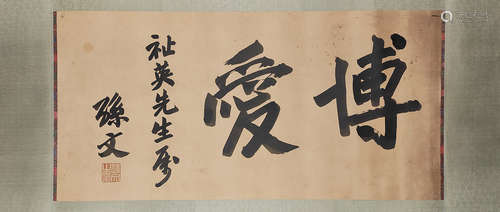 博愛
祉英先生属
孫文